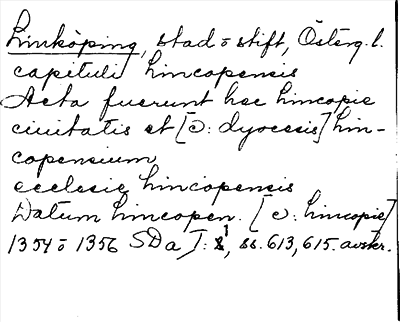 Linköping, stad o stift, Österg. l.
capituli lincopensis
Acta fuerunt hec lincopie
ciuitatis et [ɔ: dyocesis] lin-
copensium
ecclesie lincopensis
Datum lincopen. [ɔ: lincopie]
1354 o 1356 SDa I: 1, ss. 613, 615. avskr.